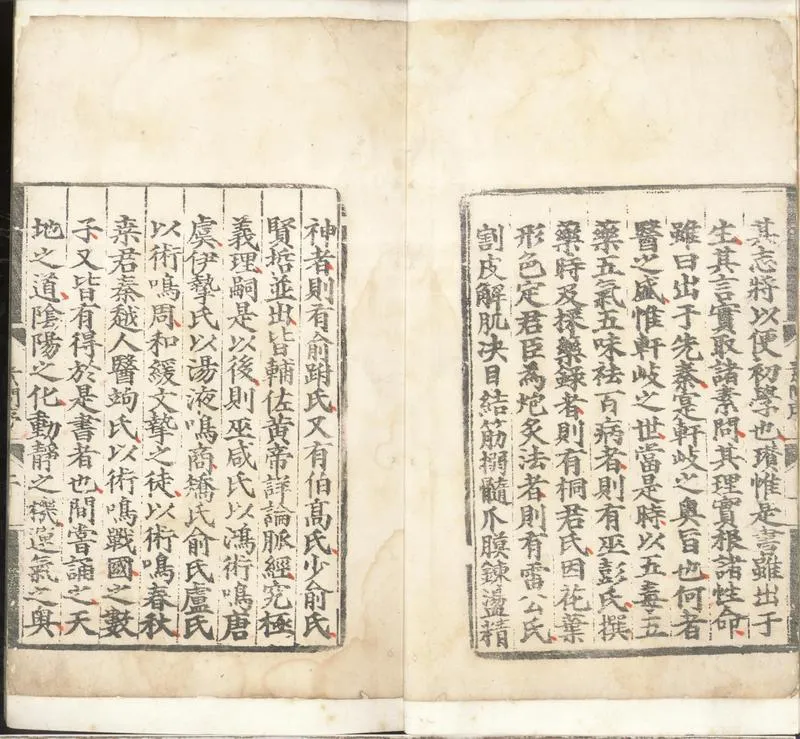 其志將以便初學也瓚惟是書雖出于
生其言實取諸素問其理實根諸性命
雖曰出于先秦寔軒歧之奧旨也何者
醫之盛惟軒歧之世當是時以五毒五
藥五氣五味祛百病者則有巫彭氏撰
藥時及採藥錄者則有桐君氏因花葉
形色定君臣為炮炙法者則有雷公氏
割皮解肌决目結筋搦髓爪膜鍊盪精
神者則有俞跗氏又有伯髙氏少俞氏
賢哲並出皆輔佐黄帝詳論脈經究極
義理嗣是以後則巫咸氏以鴻術鳴唐
虞伊摯氏以湯液鳴商矯氏俞氏盧氏
以術鳴周和緩文摯之徒以術鳴春秋
桒君秦越人醫竘氏以術鳴戰國之數
子又皆有得於是書者也間嘗誦之天
地之道隂陽之化動靜之機運氣之奥